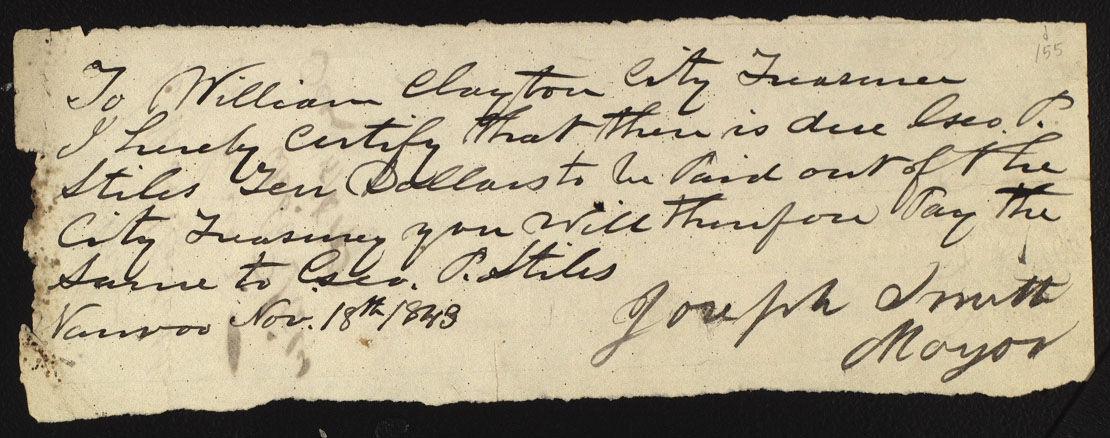 155
To William Clayton City Treasurer
I hereby Certify that there is due Geo. P.
Stiles Ten Dollars to be Paid out of the
City Treasury you Will therefore Pay the
Same to Geo. P. Stiles
Nauvoo Nov. 18th 1843
Joseph Smith
Mayor